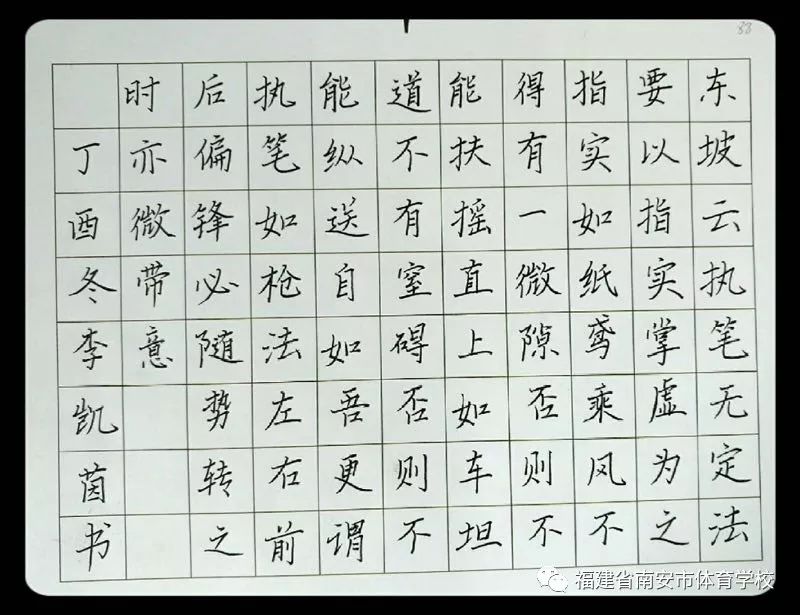 东坡云执笔无定法
要以指实掌虚为之
指实如纸鸢乘风不
得有一微隙否则不
能扶摇直上如车坦
道不有窒碍否则不
能纵送自如吾更谓
执笔如枪法左右前
后偏锋必随势转之
时亦微带意
丁酉冬李凯茵书
福建省南安市体育学校